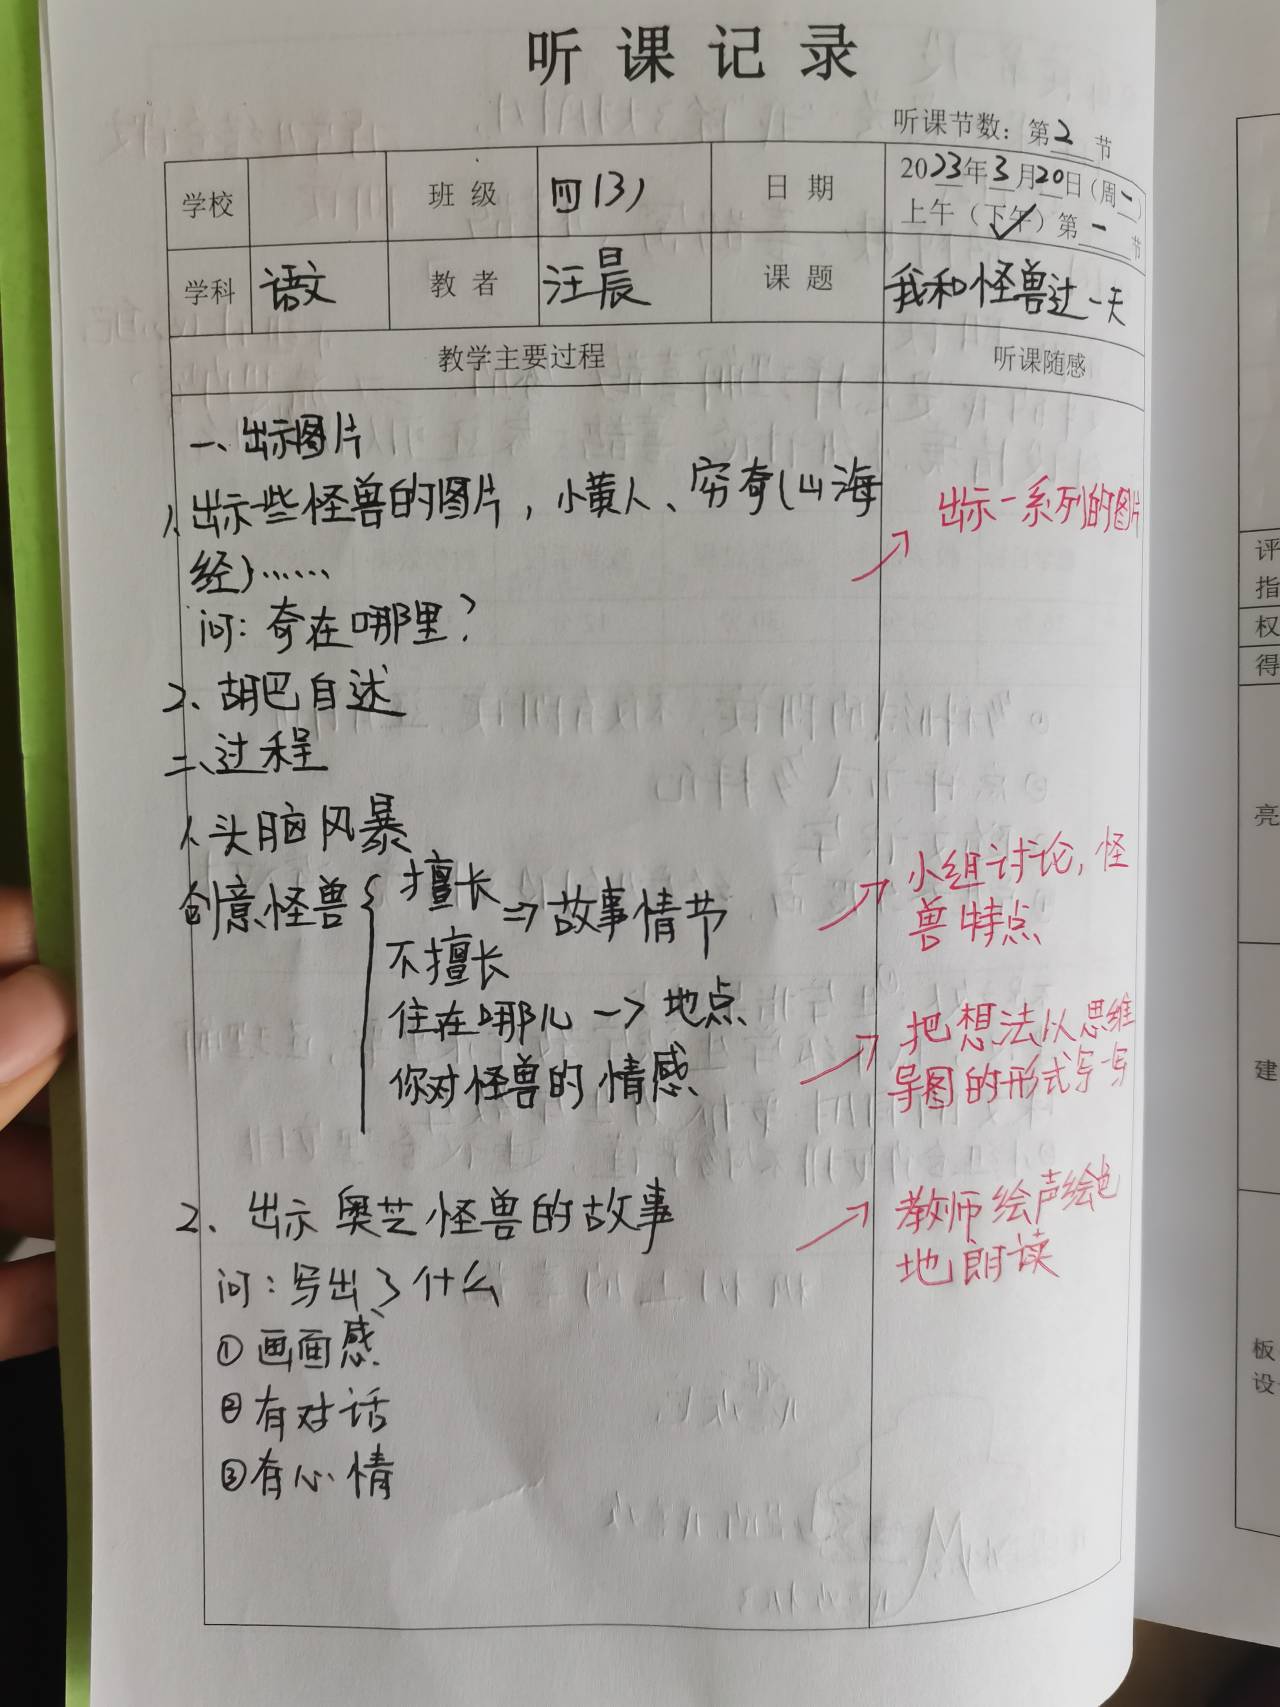 听课记录
听课节数：第2节
学校 班级 四(3) 日期 2023年3月20日(周一)
上午(下午)✓第一节
学科 语文 教者 汪晨 课题 我和怪兽过一天
教学主要过程 听课随感
一、出示图片
1、出示些怪兽的图片，小黄人、穷奇(山海
经)……
出示一系列的图片
问：奇在哪里？
2、胡巴自述
二、过程
1、头脑风暴
创意怪兽 擅长 ⇒故事情节
不擅长
住在哪儿→地点
你对怪兽的情感
小组讨论，怪
兽特点
把想法以思维
导图的形式写一写
2、出示奥芝怪兽的故事
教师绘声绘色
地朗读
问：写出了什么
①画面感
②有对话
③有心情
评
指
权
得
亮
建
板
设